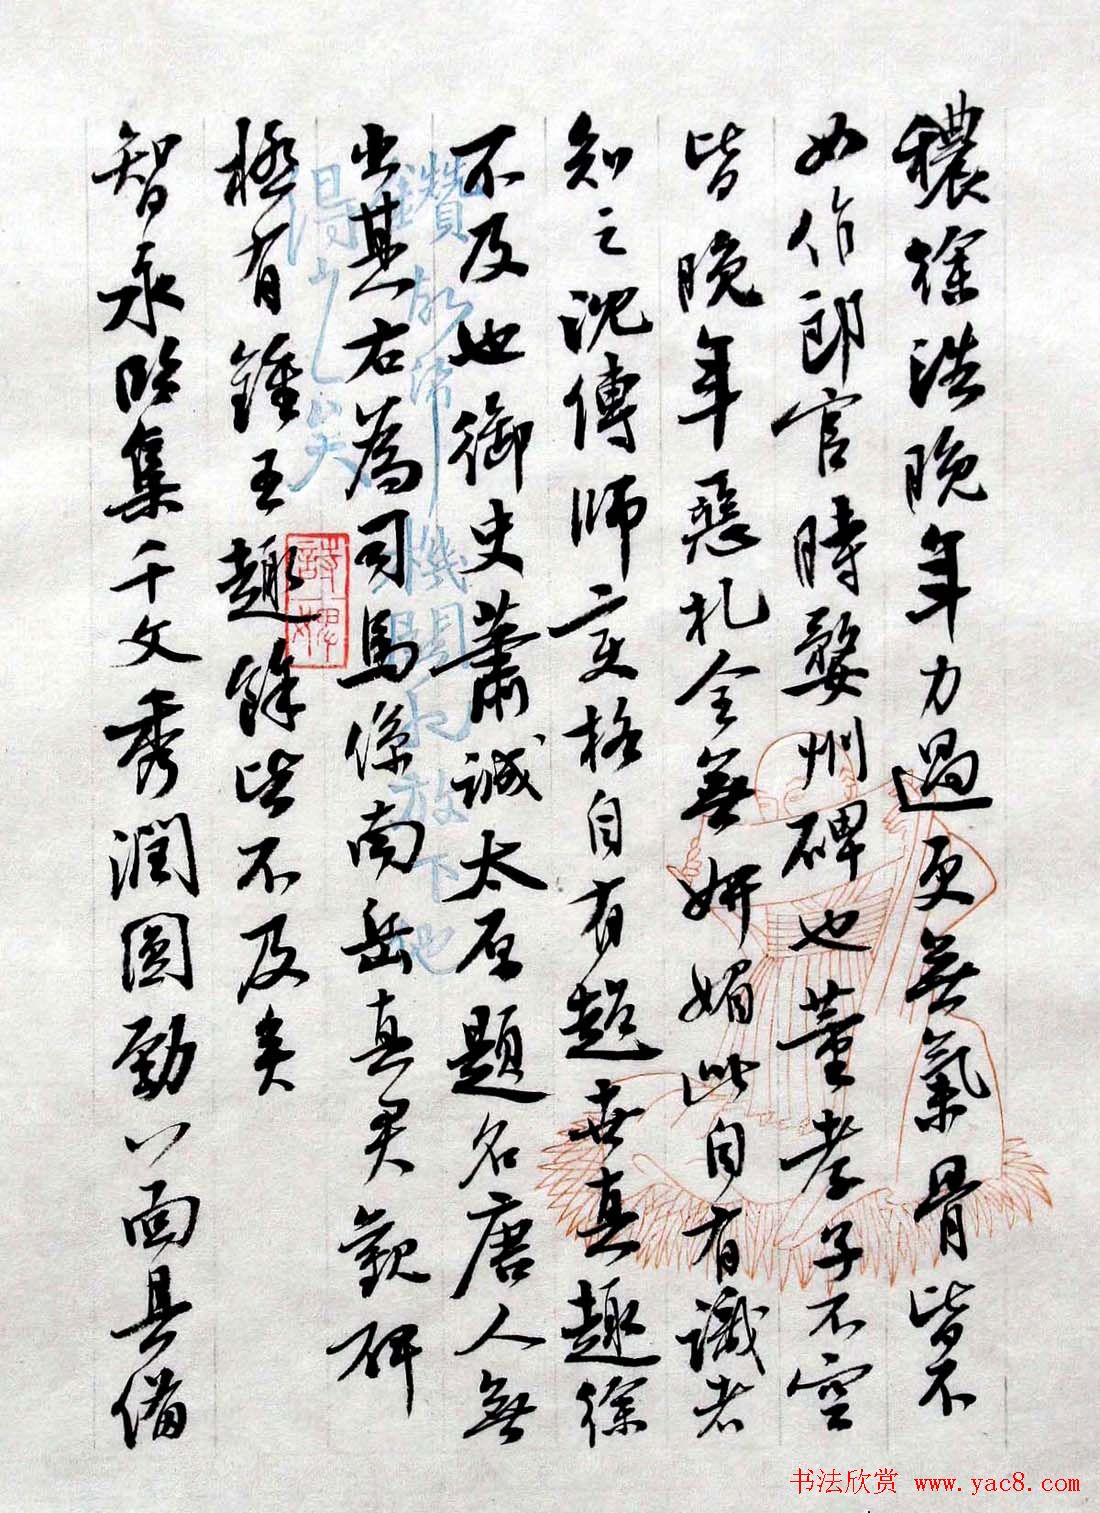 穠徐浩晚年力過更無氣骨皆不
如作郎官時婺州碑也董孝子不空
皆晚年惡札全無妍媚此自有識者
知之沈傳師变格自有超世真趣徐
不及也御史蕭誠太原題名唐人無
出其右為司馬係南岳真君觀碑
極有鍾王趣餘皆不及矣
智永臨集千文秀潤圓勁八面具備
书法欣赏 www.yac8.com